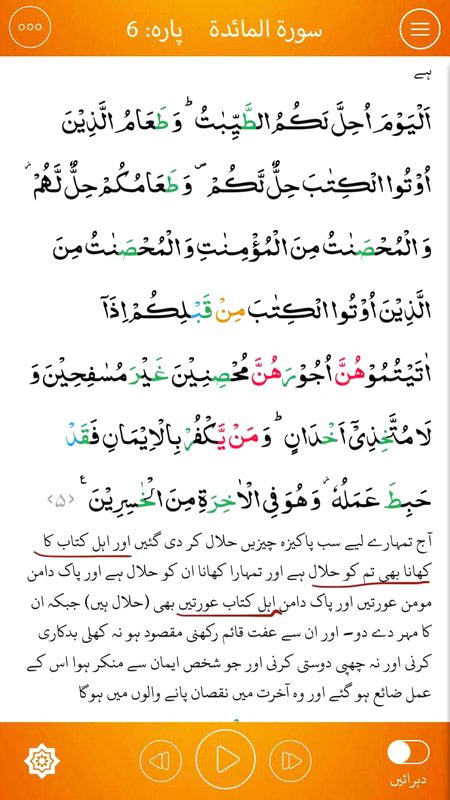 سورة المائدة پارہ: 6
ہے
اَلْيَوْمَ اُحِلَّ لَـكُمُ الطَّيِّبٰتُ‌ ؕ وَطَعَامُ الَّذِيْنَ
اُوْتُوا الْكِتٰبَ حِلٌّ لَّـكُمْ ۖ وَطَعَامُكُمْ حِلٌّ لَّهُمْ‌ ۚ
وَالْمُحْصَنٰتُ مِنَ الْمُؤْمِنٰتِ وَالْمُحْصَنٰتُ مِنَ
الَّذِيْنَ اُوْتُوا الْكِتٰبَ مِنْ قَبْلِكُمْ اِذَاۤ
اٰتَيْتُمُوْهُنَّ اُجُوْرَهُنَّ مُحْصِنِيْنَ غَيْرَ مُسٰفِحِيْنَ وَ
لَا مُتَّخِذِىْۤ اَخْدَانٍ‌ؕ وَمَنْ يَّكْفُرْ بِالْاِيْمَانِ فَقَدْ
حَبِطَ عَمَلُهٗ ۚ وَهُوَ فِى الْاٰخِرَةِ مِنَ الْخٰسِرِيْنَ ﴿۵﴾
آج تمہارے لیے سب پاکیزہ چیزیں حلال کر دی گئیں اور اہل کتاب کا
کھانا بھی تم کو حلال ہے اور تمہارا کھانا ان کو حلال ہے اور پاک دامن
مومن عورتیں اور پاک دامن اہل کتاب عورتیں بھی (حلال ہیں) جبکہ ان
کا مہر دے دو۔ اور ان سے عفت قائم رکھنی مقصود ہو نہ کھلی بدکاری
کرنی اور نہ چھپی دوستی کرنی اور جو شخص ایمان سے منکر ہوا اس کے
عمل ضائع ہو گئے اور وہ آخرت میں نقصان پانے والوں میں ہوگا
دہرائیں